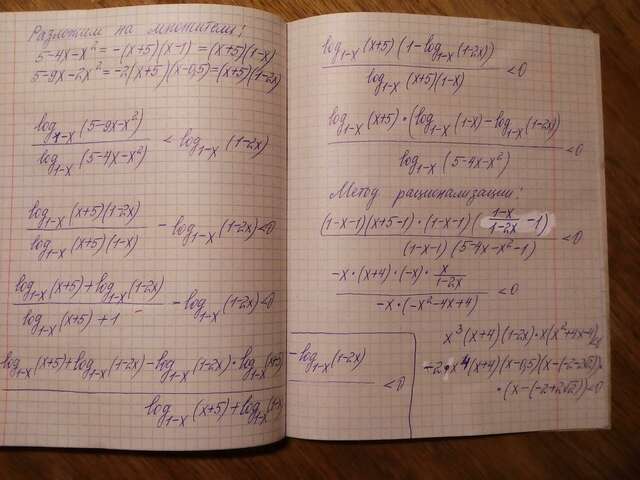 Разложим на множители:
5-4x-x² = -(x+5)(x-1) = (x+5)(1-x)
5-9x-2x² = -2(x+5)(x-0,5) = (x+5)(1-2x)
log₁₋ₓ(5-9x-x²) / log₁₋ₓ(5-4x-x²) < log₁₋ₓ(1-2x)
log₁₋ₓ(x+5)(1-2x) / log₁₋ₓ(x+5)(1-x) - log₁₋ₓ(1-2x) < 0
log₁₋ₓ(x+5) + log₁₋ₓ(1-2x) / log₁₋ₓ(x+5) + 1 - log₁₋ₓ(1-2x) < 0
log₁₋ₓ(x+5) + log₁₋ₓ(1-2x) - log₁₋ₓ(1-2x) · log₁₋ₓ(x+5) - log₁₋ₓ(1-2x) / log₁₋ₓ(x+5) + log₁₋ₓ(1-x) < 0
log₁₋ₓ(x+5)(1 - log₁₋ₓ(1-2x)) / log₁₋ₓ(x+5)(1-x) < 0
log₁₋ₓ(x+5) · (log₁₋ₓ(1-x) - log₁₋ₓ(1-2x)) / log₁₋ₓ(5-4x-x²) < 0
Метод рационализации:
(1-x-1)(x+5-1) · (1-x-1)((1-x)/(1-2x) - 1) / (1-x-1)(5-4x-x²-1) < 0
-x · (x+4) · (-x) · x/(1-2x) / -x · (-x²-4x+4) < 0
x³(x+4)(1-2x) · x(x²+4x-4)
-2 · x⁴(x+4)(x-0,5)(x-(-2-2√2)) ·
· (x-(-2+2√2)) < 0